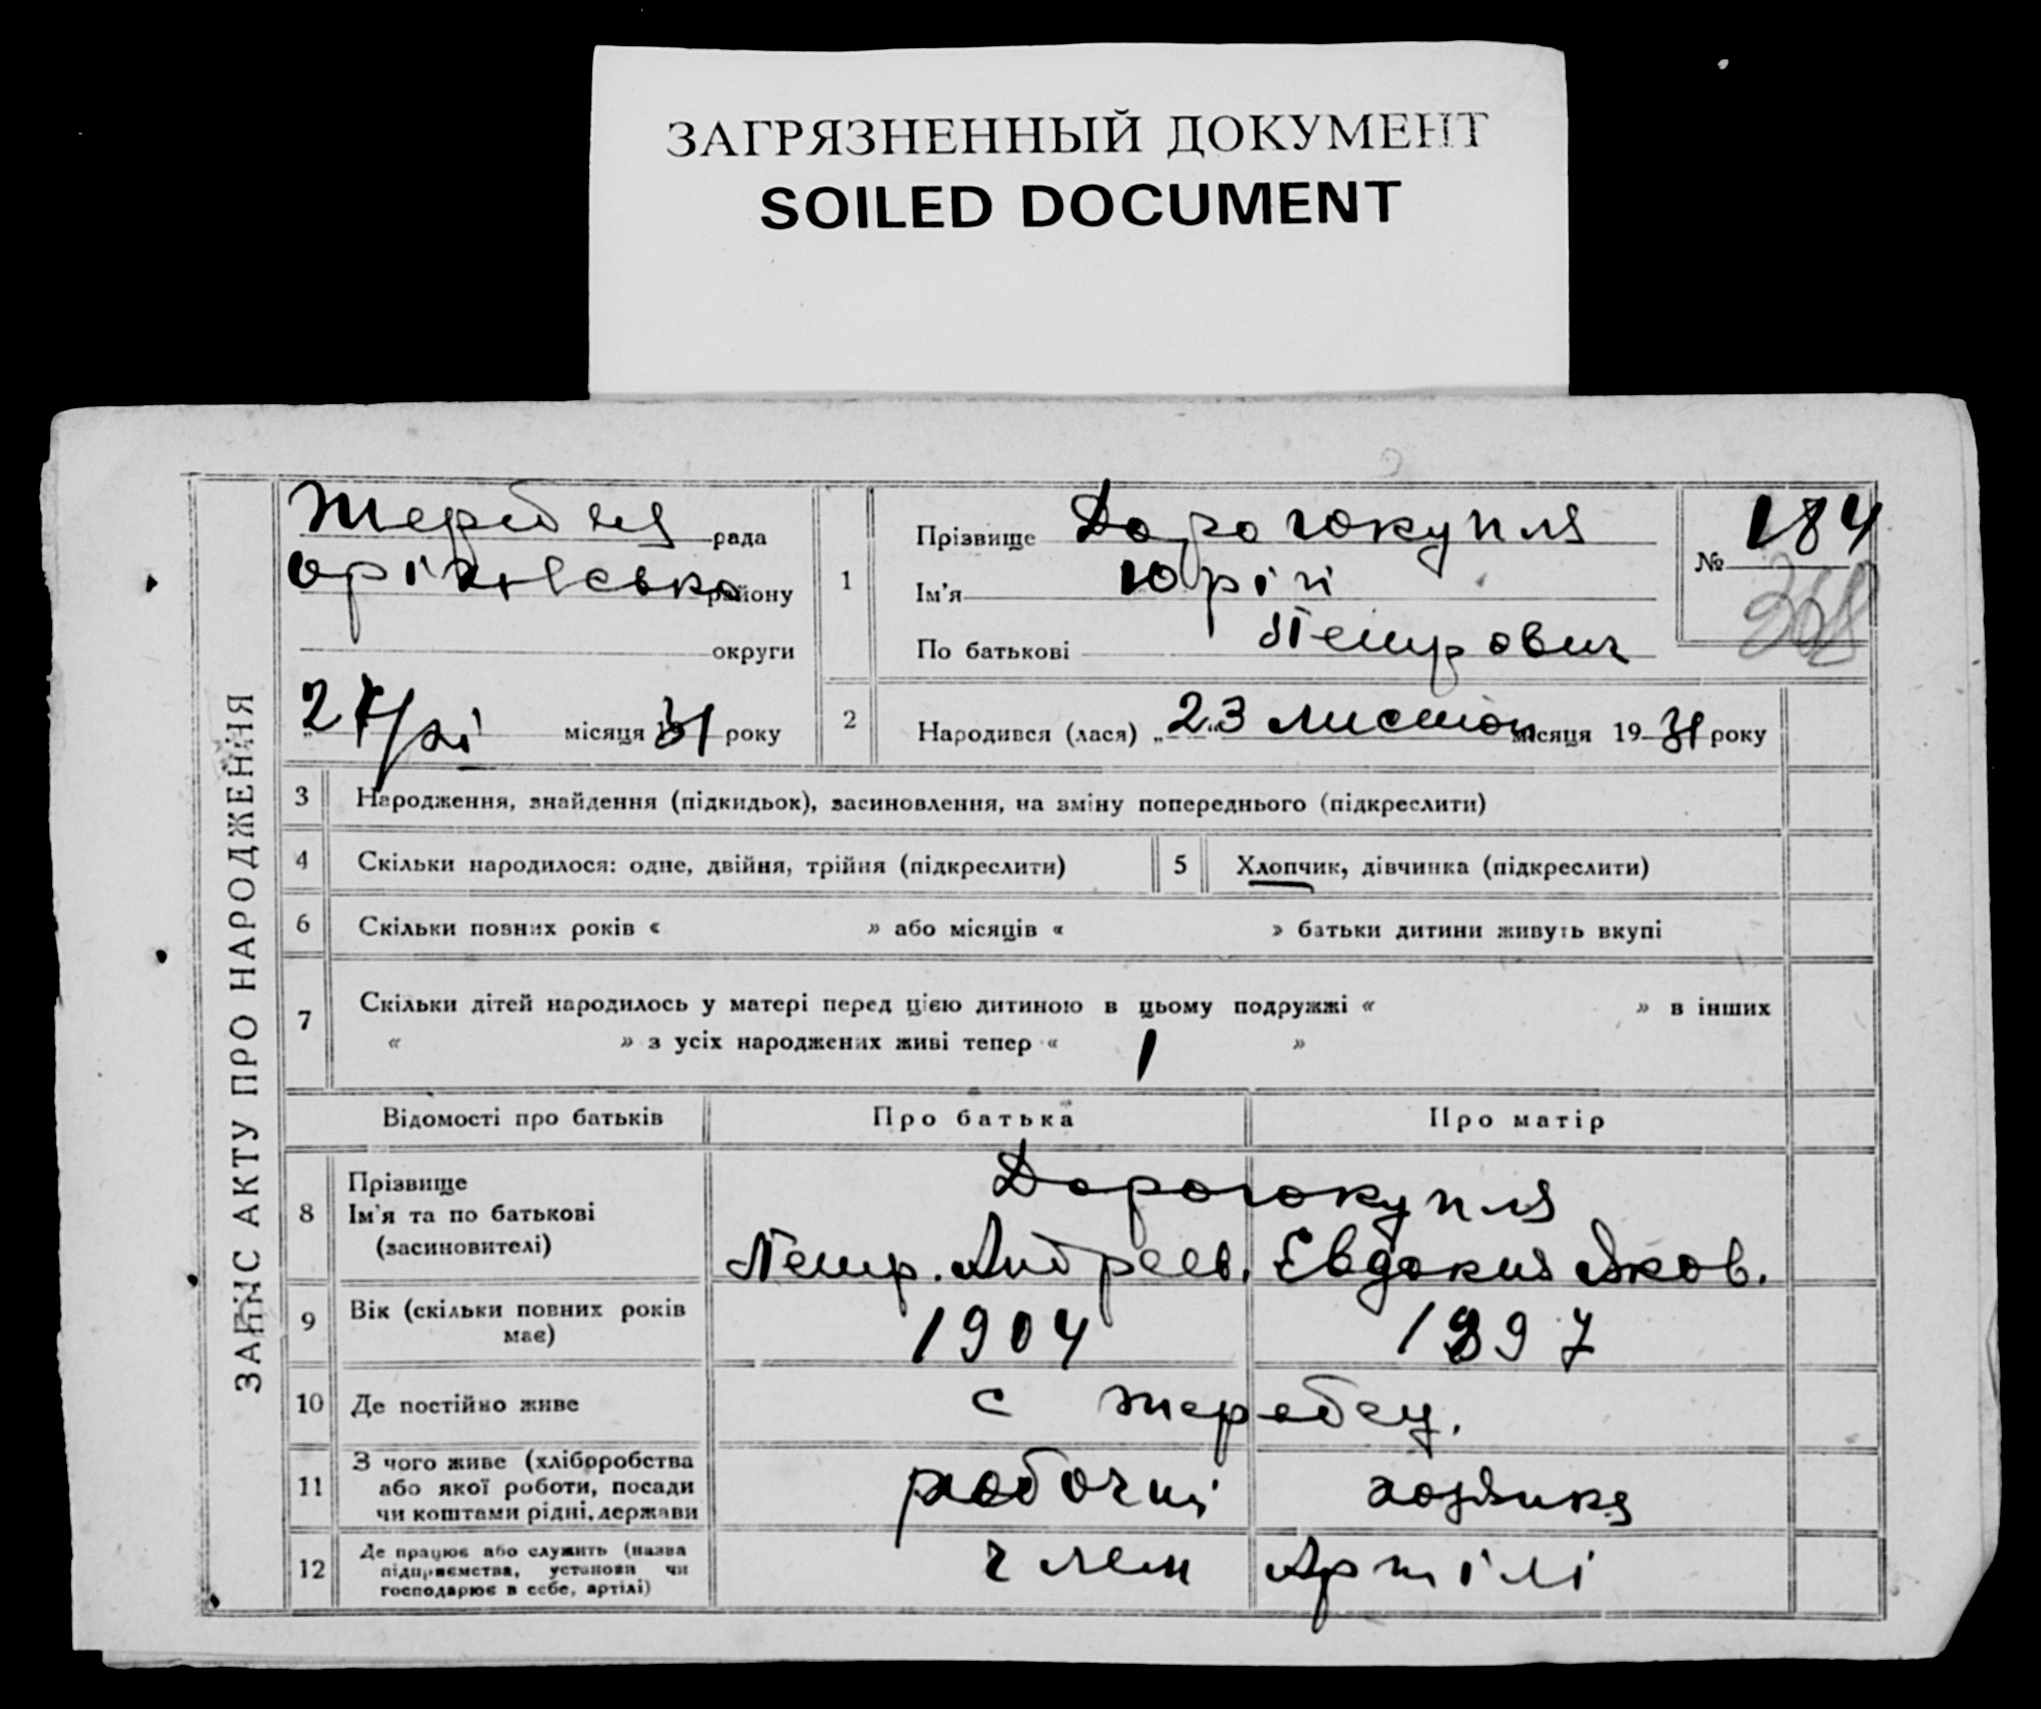 ЗАГРЯЗНЕННЫЙ ДОКУМЕНТ
SOILED DOCUMENT
ЗАПИС АКТУ ПРО НАРОДЖЕННЯ
рада
району
округи
місяця 1931 року
1
Прізвище Дорогокупля
Ім'я Юрій
По батькові Петрович
№ 184
368
2
Народився (лася) „23 листоп місяця 1931 року
3 Народження, знайдення (підкидьок), засиновлення, на зміну попереднього (підкреслити)
4 Скільки народилося: одне, двійня, трійня (підкреслити)
5 Хлопчик, дівчинка (підкреслити)
6 Скільки повних років « » або місяців « » батьки дитини живуть вкупі
7 Скільки дітей народилось у матері перед цією дитиною в цьому подружжі « » в інших
« » з усіх народжених живі тепер « 1 »
Відомості про батьків
Про батька
Про матір
8 Прізвище
Ім'я та по батькові
(засиновителі)
Дорогокупля
Петр. Андреев. Евдокия Яков.
9 Вік (скільки повних років
має)
1904 1897
10 Де постійно живе
с Жеребец.
11 З чого живе (хліборобства
або якої роботи, посади
чи коштами рідні, держави
робочий хозяйка
12 Де працює або служить (назва
підприємства, установи чи
господарює в себе, артілі)
член Артілі